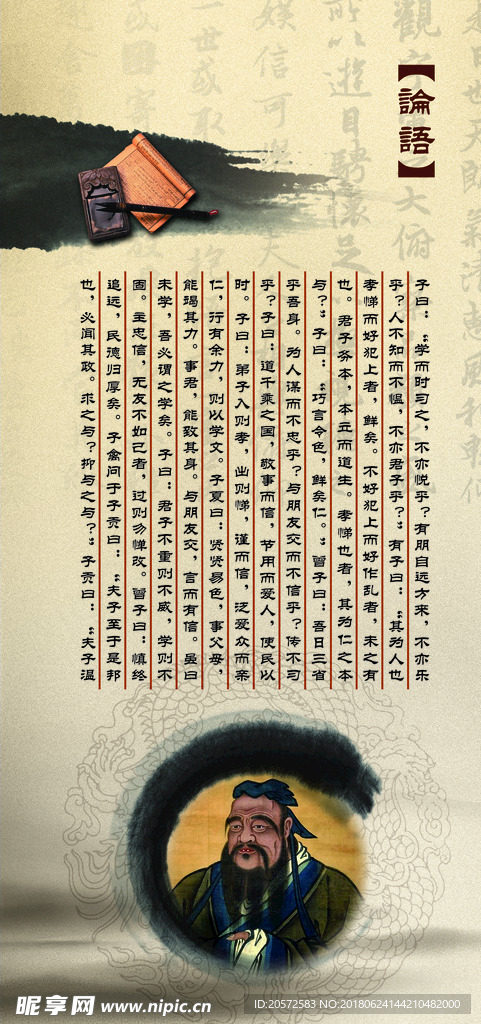 【論語】
子曰：“学而时习之，不亦悦乎？有朋自远方来，不亦乐
乎？人不知而不愠，不亦君子乎？”有子曰：“其为人也
孝悌而好犯上者，鲜矣。不好犯上而好作乱者，未之有
也。君子务本，本立而道生。孝悌也者，其为仁之本
与？”子曰：“巧言令色，鲜矣仁。”曾子曰：吾日三省
乎吾身。为人谋而不忠乎？与朋友交而不信乎？传不习
乎？子曰：道千乘之国，敬事而信，节用而爱人，使民以
时。子曰：弟子入则孝，出则悌，谨而信，泛爱众而亲
仁，行有余力，则以学文。子夏曰：贤贤易色，事父母，
能竭其力。事君，能致其身。与朋友交，言而有信。虽曰
未学，吾必谓之学矣。子曰：君子不重则不威，学则不
固。主忠信，无友不如己者，过则勿惮改。曾子曰：慎终
追远，民德归厚矣。子禽问于子贡曰：“夫子至于是邦
也，必闻其政。求之与？抑与之与？”子贡曰：“夫子温
昵享网 www.nipic.cn
ID:20572583 NO:20180624144210482000